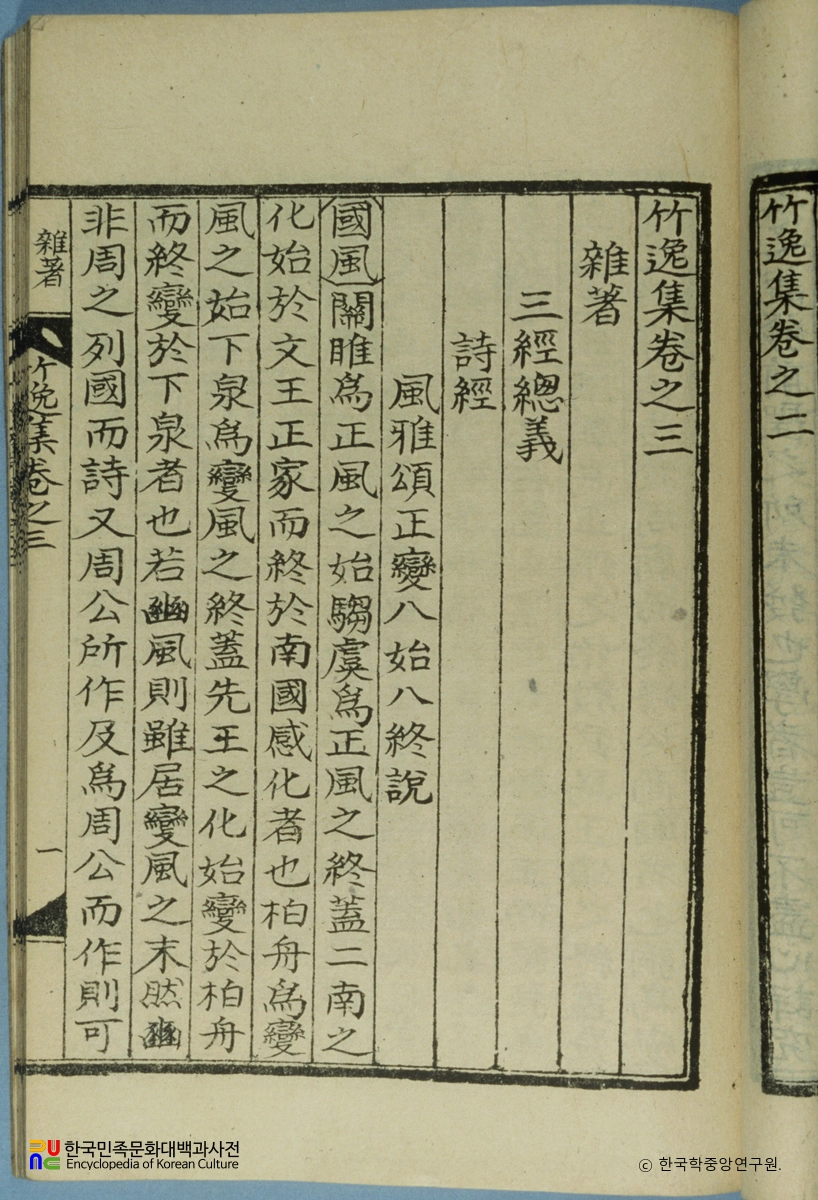 竹逸集卷之二
竹逸集卷之三
雜著
三經總義
詩經
風雅頌正變八始八終說
國風 關雎爲正風之始騶虞爲正風之終蓋二南之
化始於文王正家而終於南國感化者也柏舟爲變
風之始下泉爲變風之終蓋先王之化始變於柏舟
而終變於下泉者也若豳風則雖居變風之末然豳
非周之列國而詩又周公所作及爲周公而作則可
雜著 竹逸集卷之三 一
한국민족문화대백과사전
Encyclopedia of Korean Culture
ⓒ 한국학중앙연구원.